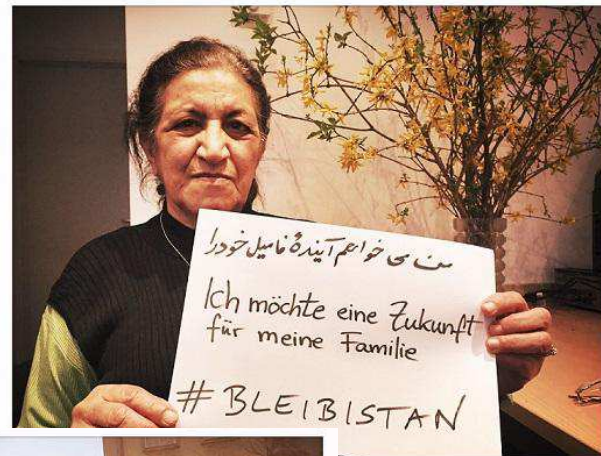 من می خواهم آیندهٔ فامیل خودرا
Ich möchte eine Zukunft
für meine Familie
# BLEIBISTAN